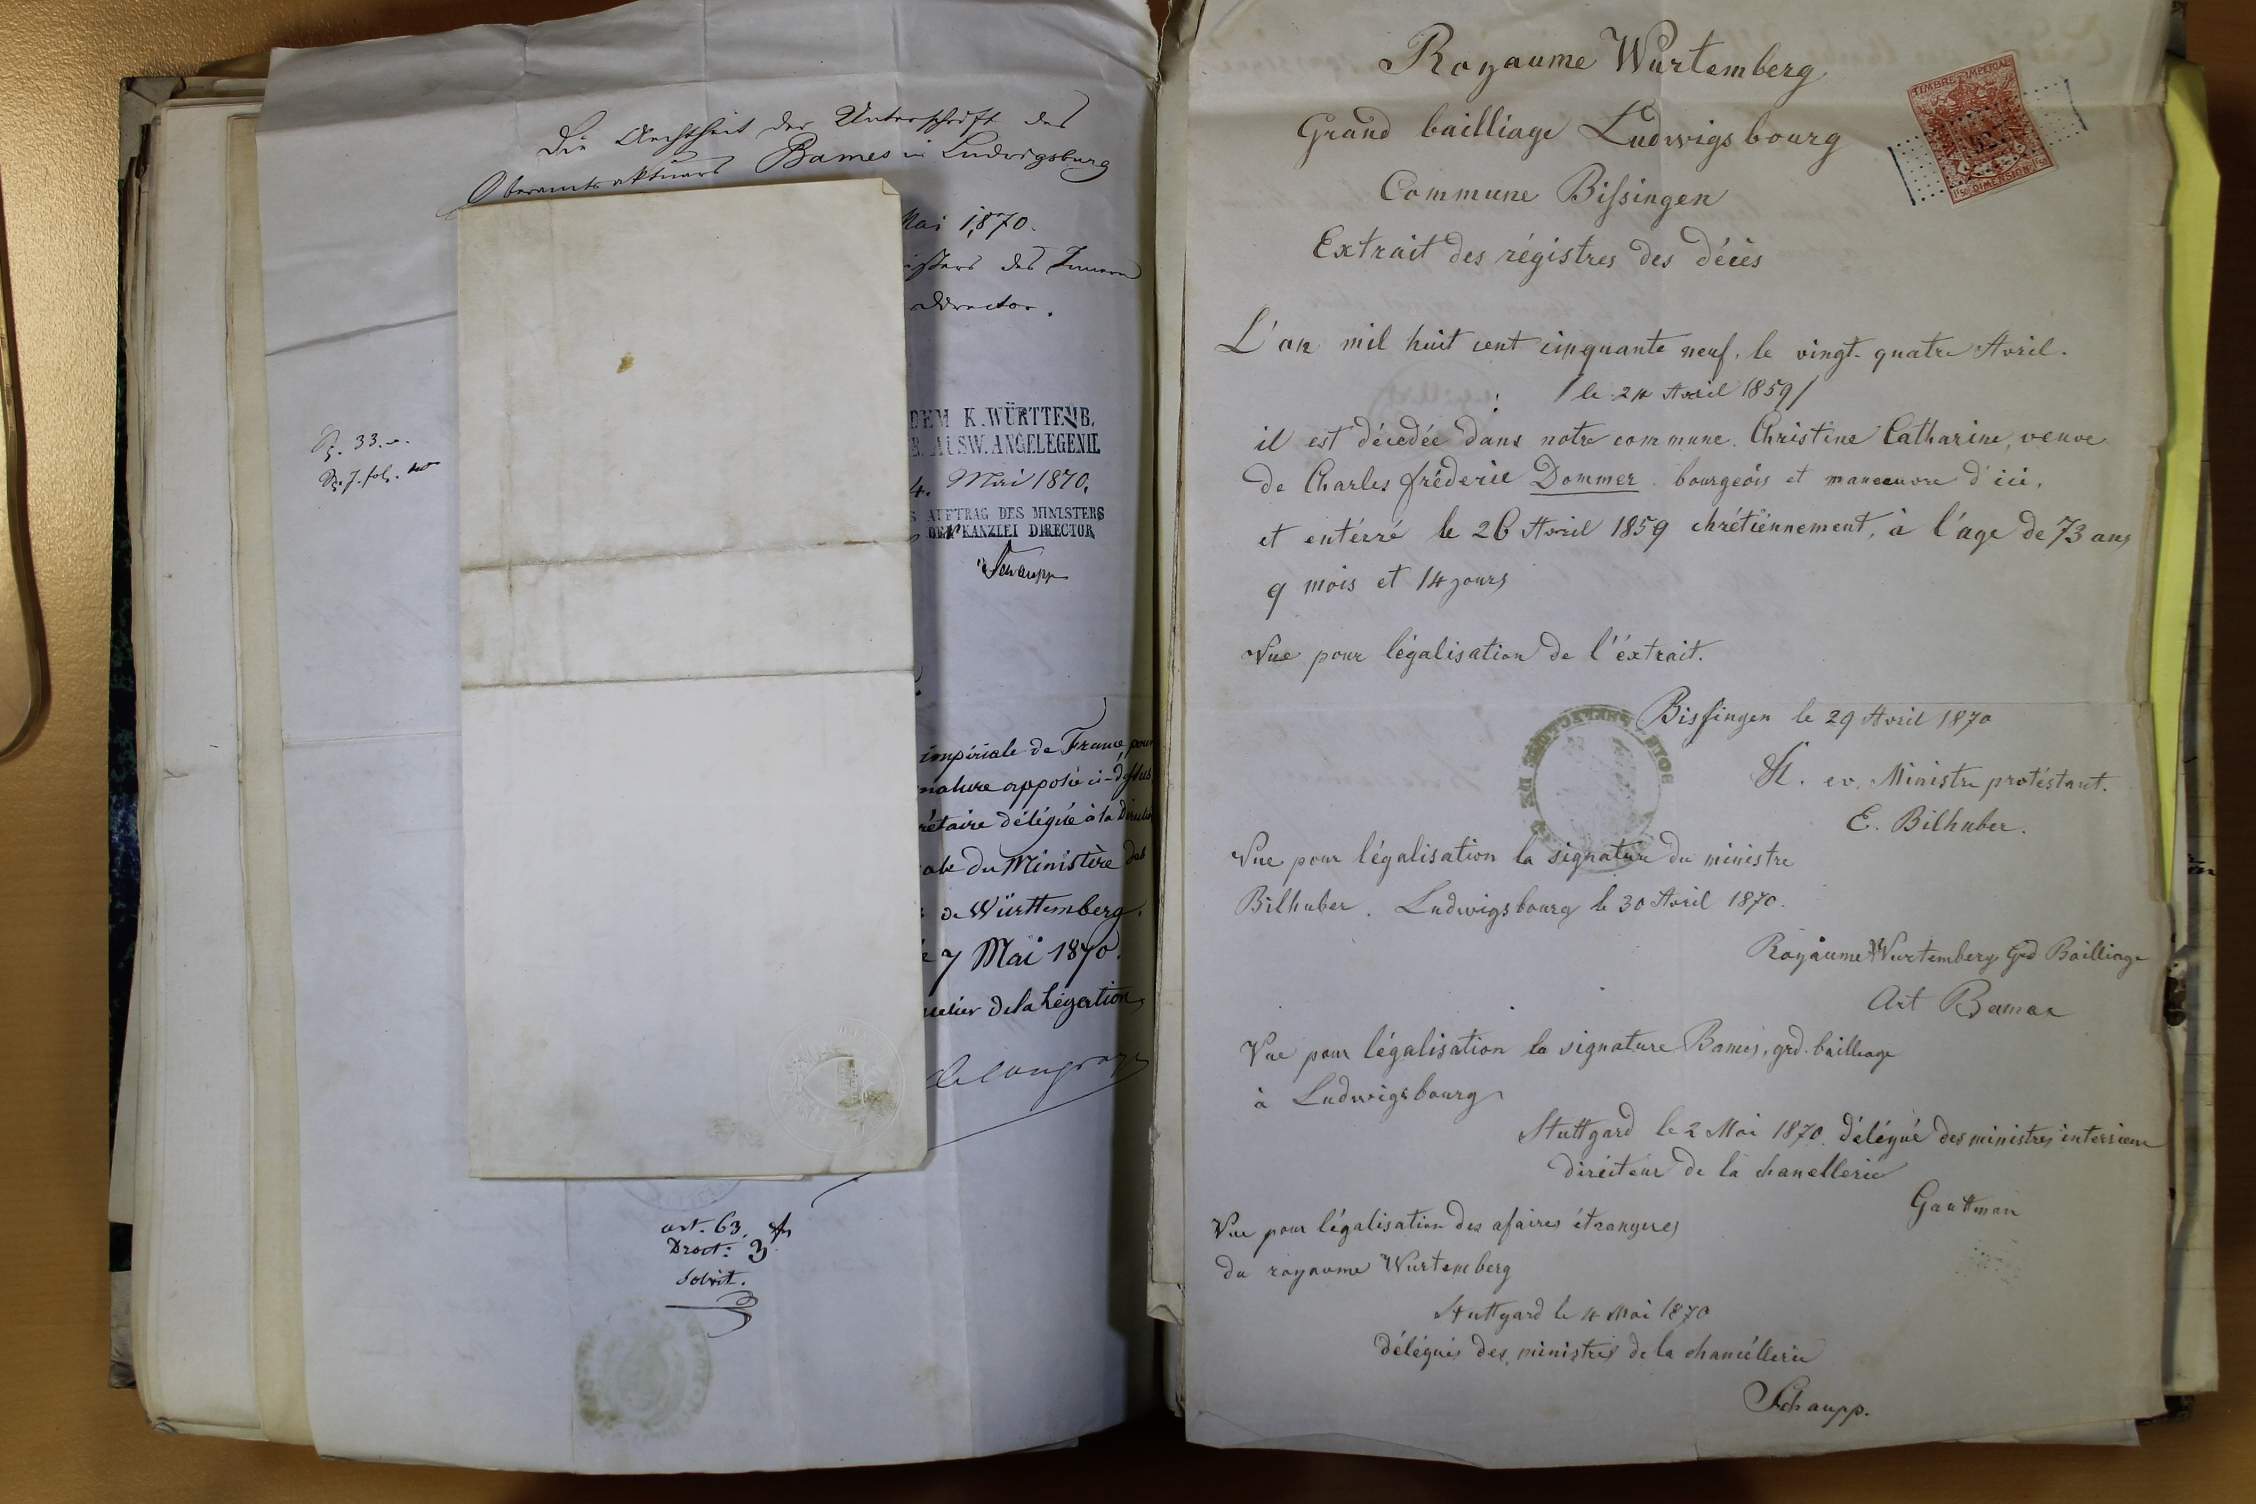 Die Aechtheit der Unterschrift des
Oberamtsaktuars Bames in Ludwigsburg
Mai 1870.
des Innern
director.
DEM K. WÜRTTEMB.
AUSW. ANGELEGENH.
4. Mai 1870.
AUFTRAG DES MINISTERS
DER KANZLEI DIRECTOR
Schaupp
impériale de France, pour
nature apposée ci-dessus
rétaire délégué à la
ale du Ministère des
de Württemberg.
7 Mai 1870.
celier de la Légation,
art. 63.
Droit: 3 f
Solvit.
Royaume Wurtemberg
Grand bailliage Ludwigsbourg
Commune Bissingen
Extrait des régistres des décès
TIMBRE IMPERIAL
DIMENSION
L'an mil huit cent cinquante neuf, le vingt-quatre Avril.
/ le 24 Avril 1859 /
il est décedée dans notre commune Christine Catharine, veuve
de Charles fréderic Dommer bourgeois et manoeuvre d'ici,
et entérré le 26 Avril 1859 chrétiennement, à l'age de 73 ans
9 mois et 14 jours
Vue pour légalisation de l'éxtrait.
Bissingen le 29 Avril 1870
ev. Ministre protéstant.
E. Bilhuber.
Vue pour légalisation la signature du ministre
Bilhuber. Ludwigsbourg le 30 Avril 1870.
Royaume Wurtemberg Grd Bailliage
Act Bames
Vue pour légalisation la signature Bames, grd. bailliage
à Ludwigsbourg
Stuttgard le 2 Mai 1870. délégué des ministres interieur
dirécteur de la chancellerie
Gauttman
Vue pour légalisation des afaires étrangeres
du royaume Wurtemberg
Stuttgard le 4 Mai 1870
délégués des ministres de la chancéllerie
Schaupp.